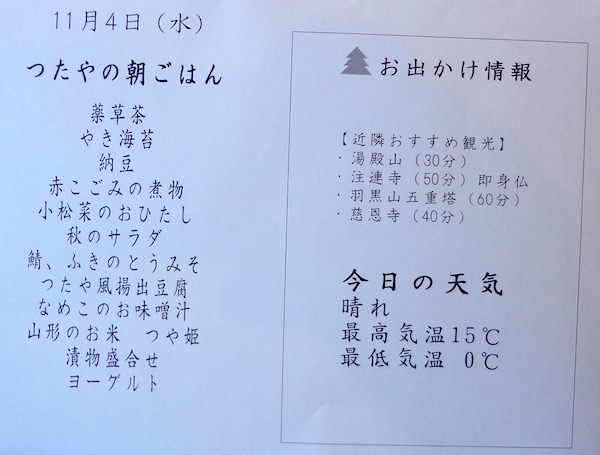 11月4日（水）
つたやの朝ごはん
薬草茶
やき海苔
納豆
赤こごみの煮物
小松菜のおひたし
秋のサラダ
鯖、ふきのとうみそ
つたや風揚出豆腐
なめこのお味噌汁
山形のお米　つや姫
漬物盛合せ
ヨーグルト
お出かけ情報
【近隣おすすめ観光】
・湯殿山（30分）
・注連寺（50分）即身仏
・羽黒山五重塔（60分）
・慈恩寺（40分）
今日の天気
晴れ
最高気温15℃
最低気温　0℃